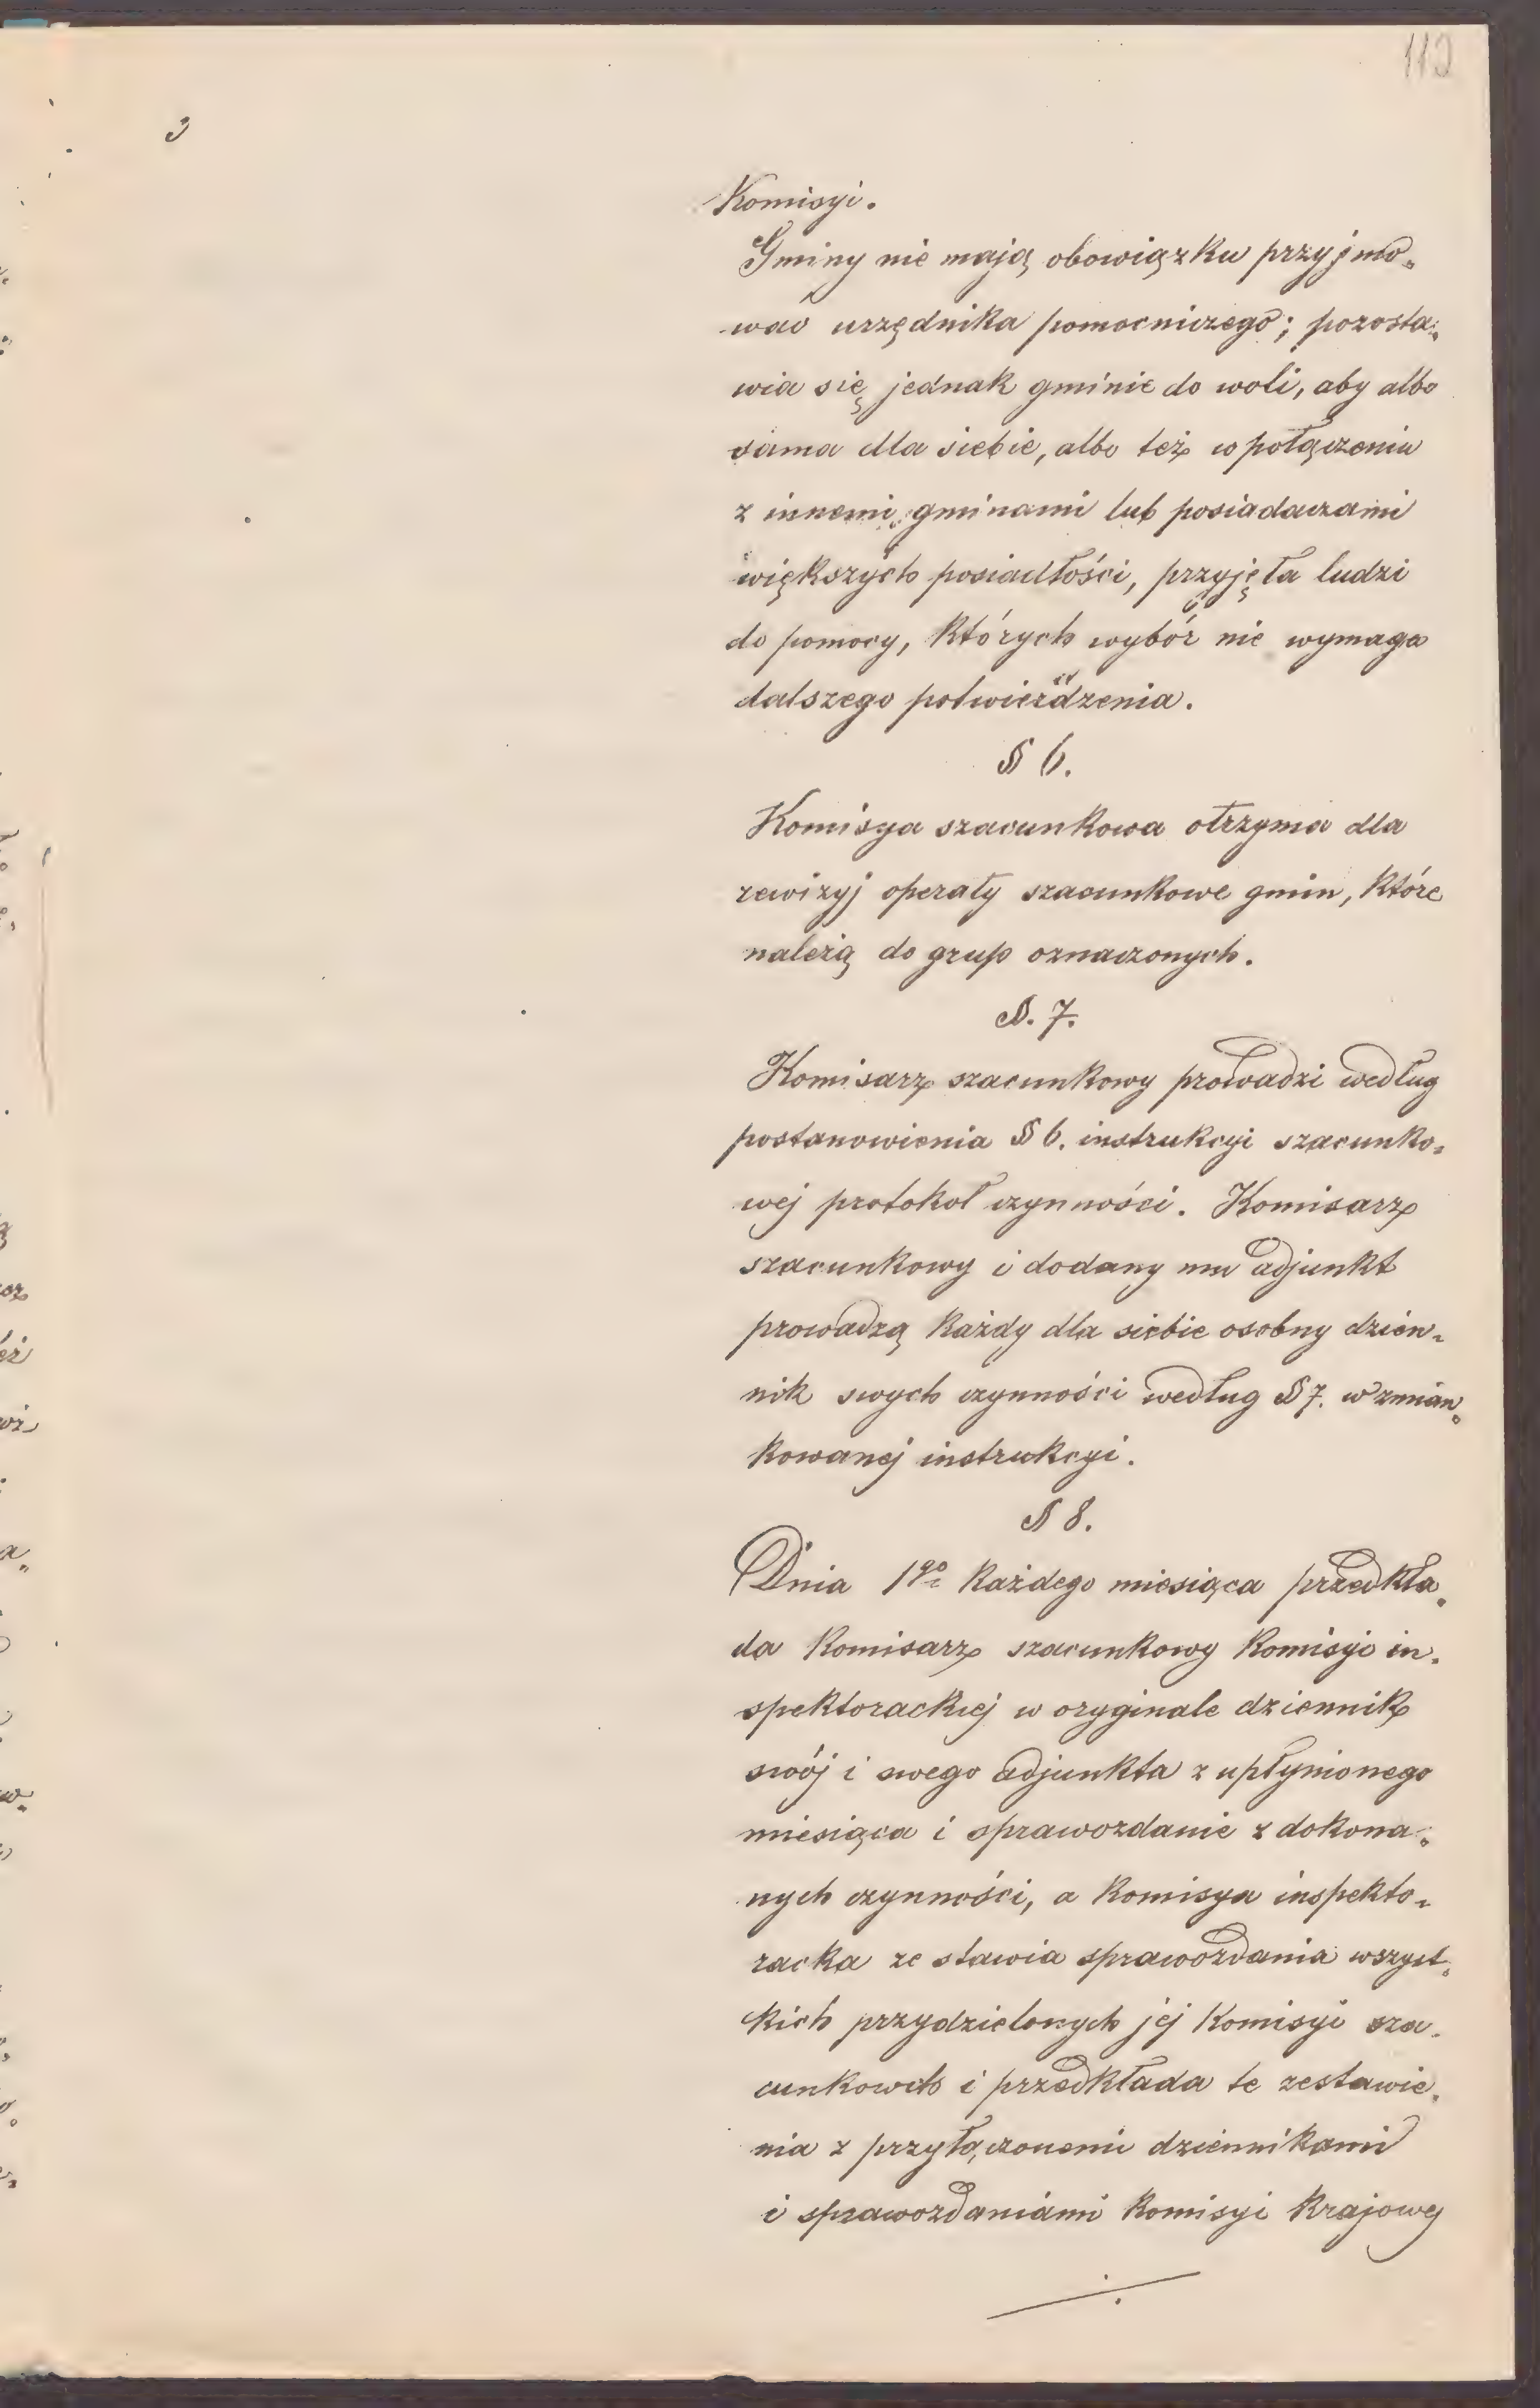 112
3
Komisyi.
Gminy nie mają obowiązku przyjmo-
wać urzędnika pomocniczego; pozosta-
wia się jednak gminie do woli, aby albo
sama dla siebie, albo też w połączeniu
z innemi gminami lub posiadaczami
większych posiadłości, przyjęła ludzi
do pomocy, których wybór nie wymaga
dalszego potwierdzenia.
§ 6.
Komisya szacunkowa otrzyma dla
rewizyj operaty szacunkowe gmin, które
należą do grup oznaczonych.
§. 7.
Komisarz szacunkowy prowadzi według
postanowienia § 6. instrukcyi szacunko-
wej protokoł czynności. Komisarz
szacunkowy i dodany mu adjunkt
prowadzą każdy dla siebie osobny dzien-
nik swych czynności według § 7. wzmian-
kowanej instrukcyi.
§ 8.
Dnia 1go każdego miesiąca przedkła-
da komisarz szacunkowy komisyi in-
spektorackiej w oryginale dziennik
swój i swego adjunkta z upłynionego
miesiąca i sprawozdanie z dokona-
nych czynności, a komisya inspekto-
racka zestawia sprawozdania wszyst-
kich przydzielonych jej komisyi sza-
cunkowch i przedkłada te zestawie-
nia z przyłączonemi dziennikami
i sprawozdaniami komisyi krajowej